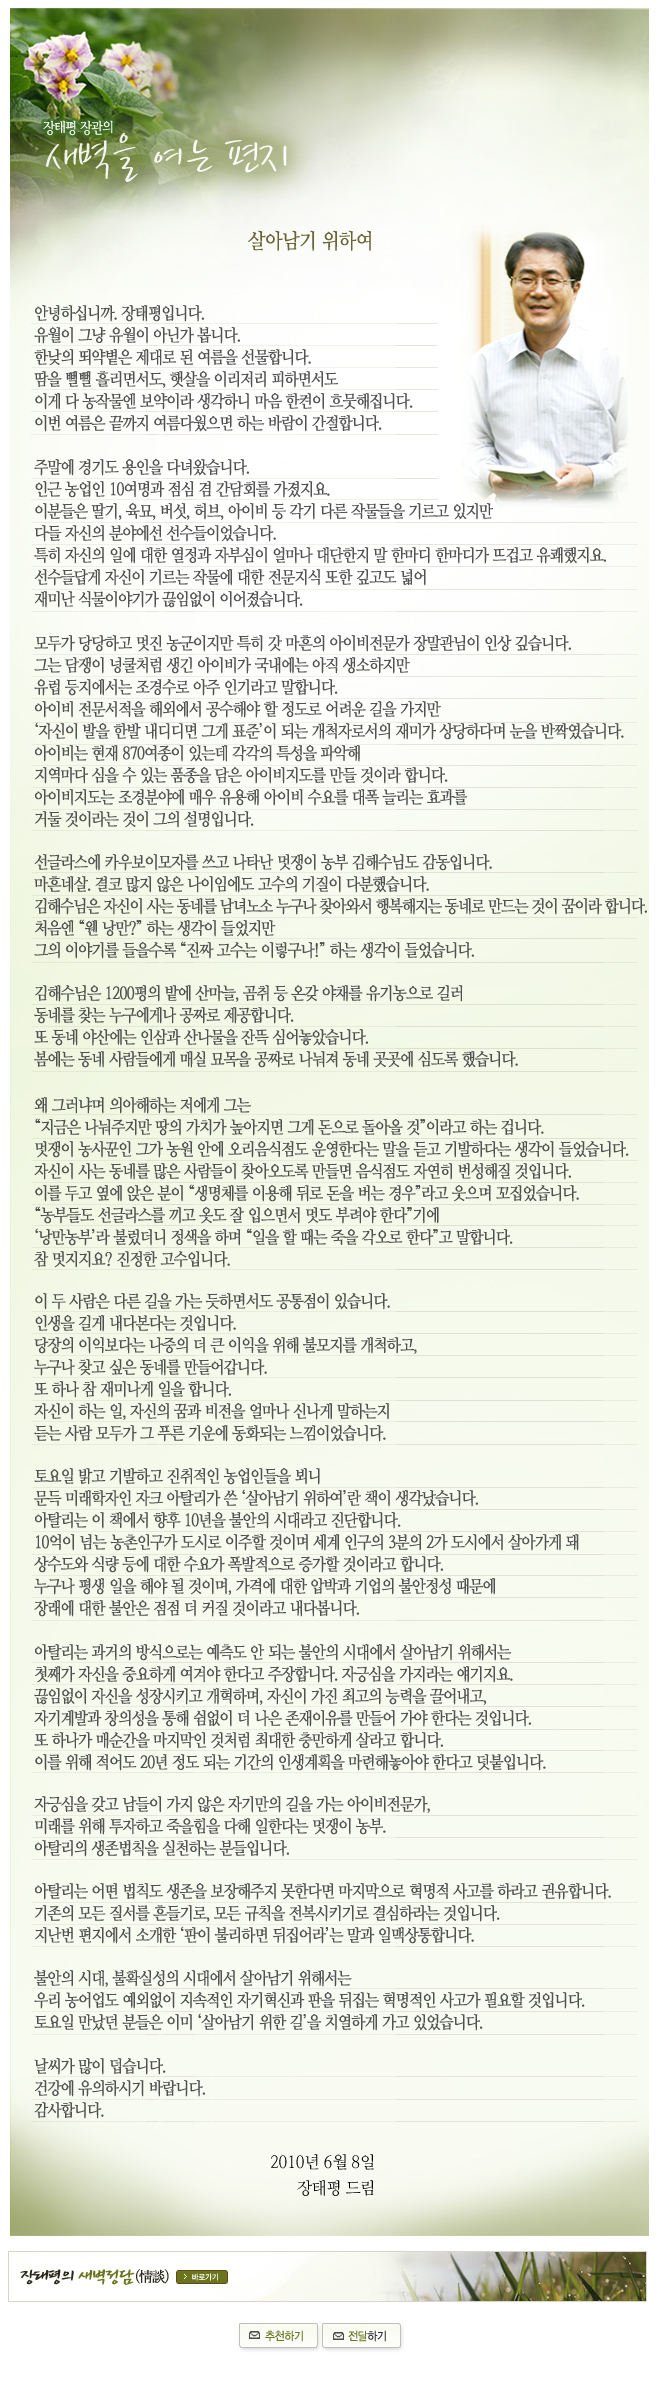 장태평 장관의
새벽을 여는 편지
살아남기 위하여
안녕하십니까. 장태평입니다.
유월이 그냥 유월이 아닌가 봅니다.
한낮의 뙤약볕은 제대로 된 여름을 선물합니다.
땀을 뻘뻘 흘리면서도, 햇살을 이리저리 피하면서도
이게 다 농작물엔 보약이라 생각하니 마음 한켠이 흐뭇해집니다.
이번 여름은 끝까지 여름다웠으면 하는 바람이 간절합니다.
주말에 경기도 용인을 다녀왔습니다.
인근 농업인 10여명과 점심 겸 간담회를 가졌지요.
이분들은 딸기, 육묘, 버섯, 허브, 아이비 등 각기 다른 작물들을 기르고 있지만
다들 자신의 분야에선 선수들이었습니다.
특히 자신의 일에 대한 열정과 자부심이 얼마나 대단한지 말 한마디 한마디가 뜨겁고 유쾌했지요.
선수들답게 자신이 기르는 작물에 대한 전문지식 또한 깊고도 넓어
재미난 식물이야기가 끊임없이 이어졌습니다.
모두가 당당하고 멋진 농군이지만 특히 갓 마흔의 아이비전문가 장말관님이 인상 깊습니다.
그는 담쟁이 넝쿨처럼 생긴 아이비가 국내에는 아직 생소하지만
유럽 등지에서는 조경수로 아주 인기라고 말합니다.
아이비 전문서적을 해외에서 공수해야 할 정도로 어려운 길을 가지만
‘자신이 발을 한발 내디디면 그게 표준’이 되는 개척자로서의 재미가 상당하다며 눈을 반짝였습니다.
아이비는 현재 870여종이 있는데 각각의 특성을 파악해
지역마다 심을 수 있는 품종을 담은 아이비지도를 만들 것이라 합니다.
아이비지도는 조경분야에 매우 유용해 아이비 수요를 대폭 늘리는 효과를
거둘 것이라는 것이 그의 설명입니다.
선글라스에 카우보이모자를 쓰고 나타난 멋쟁이 농부 김해수님도 감동입니다.
마흔네살. 결코 많지 않은 나이임에도 고수의 기질이 다분했습니다.
김해수님은 자신이 사는 동네를 남녀노소 누구나 찾아와서 행복해지는 동네로 만드는 것이 꿈이라 합니다.
처음엔 “웬 낭만?” 하는 생각이 들었지만
그의 이야기를 들을수록 “진짜 고수는 이렇구나!” 하는 생각이 들었습니다.
김해수님은 1200평의 밭에 산마늘, 곰취 등 온갖 야채를 유기농으로 길러
동네를 찾는 누구에게나 공짜로 제공합니다.
또 동네 야산에는 인삼과 산나물을 잔뜩 심어놓았습니다.
봄에는 동네 사람들에게 매실 묘목을 공짜로 나눠져 동네 곳곳에 심도록 했습니다.
왜 그러냐며 의아해하는 저에게 그는
“지금은 나눠주지만 땅의 가치가 높아지면 그게 돈으로 돌아올 것”이라고 하는 겁니다.
멋쟁이 농사꾼인 그가 농원 안에 오리음식점도 운영한다는 말을 듣고 기발하다는 생각이 들었습니다.
자신이 사는 동네를 많은 사람들이 찾아오도록 만들면 음식점도 자연히 번성해질 것입니다.
이를 두고 옆에 앉은 분이 “생명체를 이용해 뒤로 돈을 버는 경우”라고 웃으며 꼬집었습니다.
“농부들도 선글라스를 끼고 옷도 잘 입으면서 멋도 부려야 한다”기에
‘낭만농부’라 불렀더니 정색을 하며 “일을 할 때는 죽을 각오로 한다”고 말합니다.
참 멋지지요? 진정한 고수입니다.
이 두 사람은 다른 길을 가는 듯하면서도 공통점이 있습니다.
인생을 길게 내다본다는 것입니다.
당장의 이익보다는 나중의 더 큰 이익을 위해 불모지를 개척하고,
누구나 찾고 싶은 동네를 만들어갑니다.
또 하나 참 재미나게 일을 합니다.
자신이 하는 일, 자신의 꿈과 비전을 얼마나 신나게 말하는지
듣는 사람 모두가 그 푸른 기운에 동화되는 느낌이었습니다.
토요일 밝고 기발하고 진취적인 농업인들을 뵈니
문득 미래학자인 자크 아탈리가 쓴 ‘살아남기 위하여’란 책이 생각났습니다.
아탈리는 이 책에서 향후 10년을 불안의 시대라고 진단합니다.
10억이 넘는 농촌인구가 도시로 이주할 것이며 세계 인구의 3분의 2가 도시에서 살아가게 돼
상수도와 식량 등에 대한 수요가 폭발적으로 증가할 것이라고 합니다.
누구나 평생 일을 해야 될 것이며, 가격에 대한 압박과 기업의 불안정성 때문에
장래에 대한 불안은 점점 더 커질 것이라고 내다봅니다.
아탈리는 과거의 방식으로는 예측도 안 되는 불안의 시대에서 살아남기 위해서는
첫째가 자신을 중요하게 여겨야 한다고 주장합니다. 자긍심을 가지라는 얘기지요.
끊임없이 자신을 성장시키고 개혁하며, 자신이 가진 최고의 능력을 끌어내고,
자기계발과 창의성을 통해 쉼없이 더 나은 존재이유를 만들어 가야 한다는 것입니다.
또 하나가 매순간을 마지막인 것처럼 최대한 충만하게 살라고 합니다.
이를 위해 적어도 20년 정도 되는 기간의 인생계획을 마련해놓아야 한다고 덧붙입니다.
자긍심을 갖고 남들이 가지 않은 자기만의 길을 가는 아이비전문가,
미래를 위해 투자하고 죽을힘을 다해 일한다는 멋쟁이 농부.
아탈리의 생존법칙을 실천하는 분들입니다.
아탈리는 어떤 법칙도 생존을 보장해주지 못한다면 마지막으로 혁명적 사고를 하라고 권유합니다.
기존의 모든 질서를 흔들기로, 모든 규칙을 전복시키기로 결심하라는 것입니다.
지난번 편지에서 소개한 ‘판이 불리하면 뒤집어라’는 말과 일맥상통합니다.
불안의 시대, 불확실성의 시대에서 살아남기 위해서는
우리 농어업도 예외없이 지속적인 자기혁신과 판을 뒤집는 혁명적인 사고가 필요할 것입니다.
토요일 만났던 분들은 이미 ‘살아남기 위한 길’을 치열하게 가고 있었습니다.
날씨가 많이 덥습니다.
건강에 유의하시기 바랍니다.
감사합니다.
2010년 6월 8일
장태평 드림
장태평의 새벽정담(情談) 바로가기
추천하기 전달하기